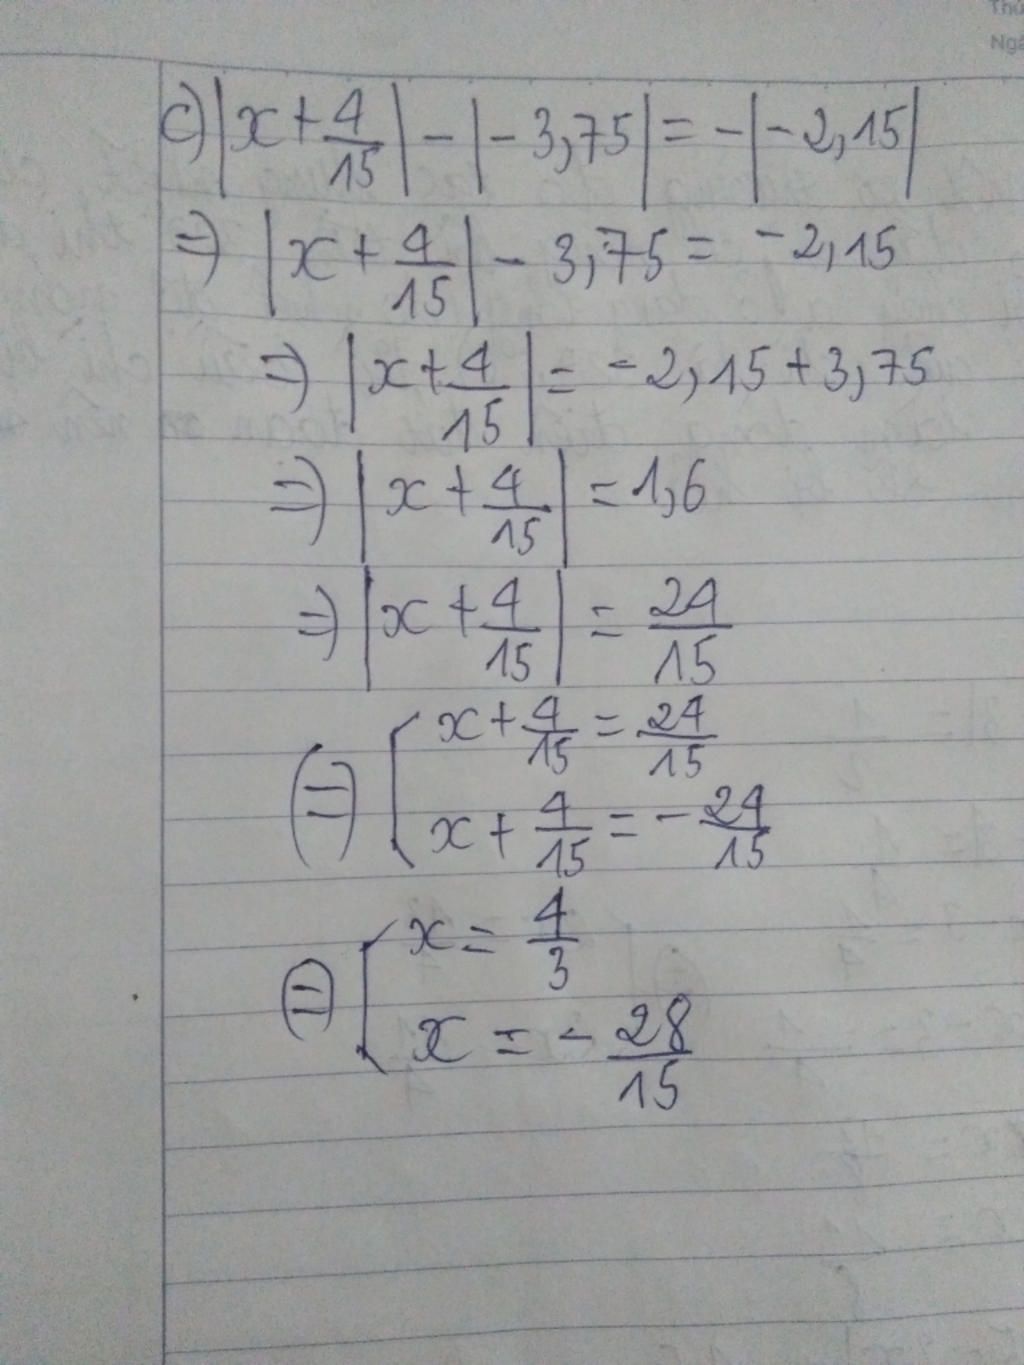 Thứ
Ngà
c) |x + 4/15| - |-3,75| = -|-2,15|
=> |x + 4/15| - 3,75 = -2,15
=> |x + 4/15| = -2,15 + 3,75
=> |x + 4/15| = 1,6
=> |x + 4/15| = 24/15
(=) [ x + 4/15 = 24/15
x + 4/15 = - 24/15
(=) [ x = 4/3
x = - 28/15